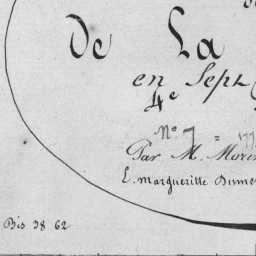 De La
en Sept
4e
No 7 = 177
Par M. Morin
E. Margueritte Dumet
Bis 38 62